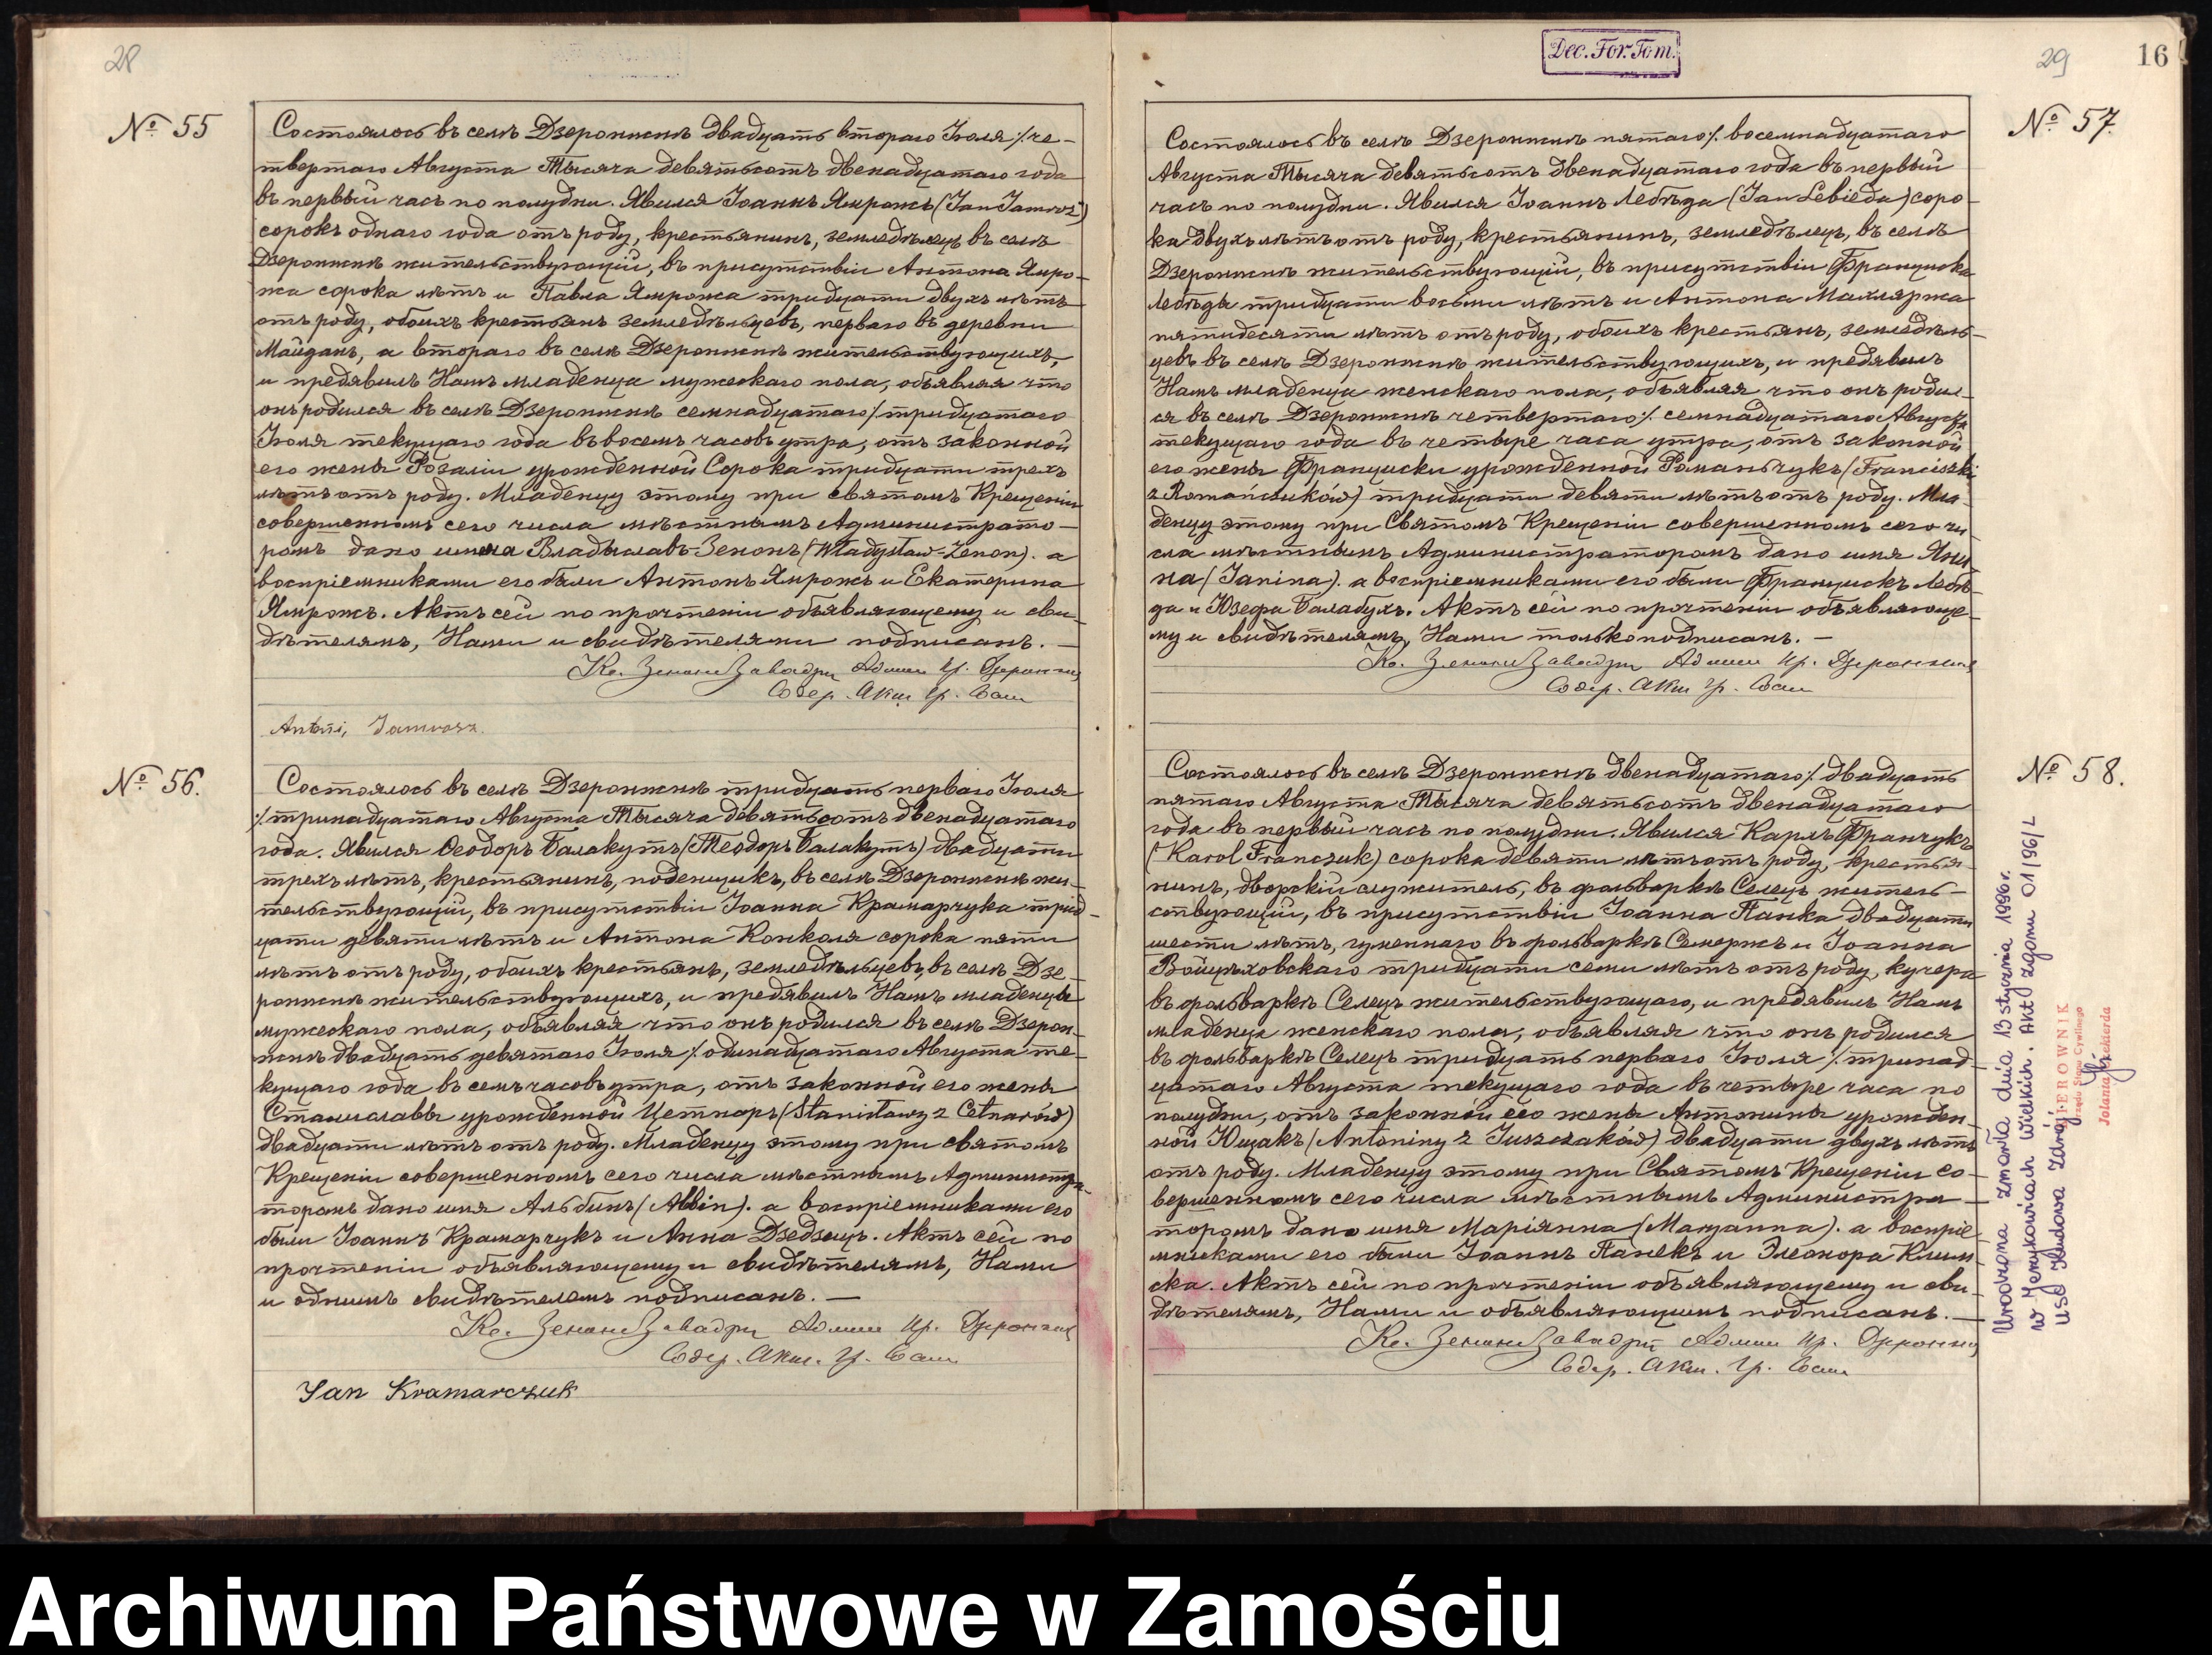 28
№ 55
Состоялось въ селѣ Дзеронжнѣ двадцать втораго Іюля ⁒ че-
твертаго Августа Тысяча девятьсотъ двенадцатаго года
въ первый часъ по полудни. Явился Іоаннъ Ямрожъ (Jan Jamroz)
сорокъ однаго года отъ роду, крестьянинъ, земледѣлецъ въ селѣ
Дзеронжнѣ жительствующій, въ присутствіи Антона Ямро-
жа сорока лѣтъ и Павла Ямрожа тридцати двухъ лѣтъ
отъ роду, обоихъ крестьянъ земледѣльцевъ, перваго въ деревни
Майданъ, а втораго въ селѣ Дзеронжнѣ жительствующихъ,
и предявилъ Намъ младенца мужескаго пола, объявляя что
онъ родился въ селѣ Дзеронжнѣ семнадцатаго ⁒ тридцатаго
Іюля текущаго года въ восемь часовъ утра, отъ законной
его жены Розаліи урожденной Сорока тридцати трехъ
лѣтъ отъ роду. Младенцу этому при святомъ Крещеніи
совершенномъ сего числа мѣстнымъ Администрато-
ромъ дано имена Владыславъ-Зенонъ (Władysław-Zenon). а
воспріемниками его были Антонъ Ямрожъ и Екатерина
Ямрожъ. Актъ сей по прочтеніи объявляющему и сви-
дѣтелямъ, Нами и свидѣтелями подписанъ. —
Кс. Зенонъ Завадзки Админ. пр. Дзеронжня
Содер. Акт. Гр. Сост.
Antoni, Jamrosz.
№ 56.
Состоялось въ селѣ Дзеронжнѣ тридцать перваго Іюля
⁒ тринадцатаго Августа Тысяча девятьсотъ двенадцатаго
года. Явился Ѳеодоръ Балакутъ (Теодоръ Балакутъ) двадцати
трехъ лѣтъ, крестьянинъ, поденщикъ, въ селѣ Дзеронжнѣ жи-
тельствующій, въ присутствіи Іоанна Крамарчука трид-
цати девяти лѣтъ и Антона Конколя сорока пяти
лѣтъ отъ роду, обоихъ крестьянъ, земледѣльцевъ, въ селѣ Дзе-
ронжнѣ жительствующихъ, и предявилъ Намъ младенца
мужескаго пола, объявляя что онъ родился въ селѣ Дзерон-
жнѣ двадцать девятаго Іюля ⁒ одинадцатаго Августа те-
кущаго года въ семь часовъ утра, отъ законной его жены
Станиславы урожденной Цетнаръ (Stanisławy z Cetnarów)
двадцати лѣтъ отъ роду. Младенцу этому при святомъ
Крещеніи совершенномъ сего числа мѣстнымъ Администра-
торомъ дано имя Альбинъ (Albin). а воспріемниками его
были Іоаннъ Крамарчукъ и Анна Дзедзицъ. Актъ сей по
прочтеніи объявляющему и свидѣтелямъ, Нами
и однимъ свидѣтелемъ подписанъ. —
Кс. Зенонъ Завадзки Админ. пр. Дзеронжня
Содер. Акт. Гр. Сост.
Jan Kramarczuk
Dec. For. Tom.
29
16
№ 57.
Состоялось въ селѣ Дзеронжнѣ пятаго ⁒ восемнадцатаго
Августа Тысяча девятьсотъ двенадцатаго года въ первый
часъ по полудни. Явился Іоаннъ Лебѣда (Jan Lebieda) соро-
ка двухъ лѣтъ отъ роду, крестьянинъ, земледѣлецъ, въ селѣ
Дзеронжнѣ жительствующій, въ присутствіи Францишка
Лебѣды тридцати восьми лѣтъ и Антона Махляржа
пятидесяти лѣтъ отъ роду, обоихъ крестьянъ, земледѣль-
цевъ въ селѣ Дзеронжнѣ жительствующихъ, и предявилъ
Намъ младенца женскаго пола, объявляя что онъ родил-
ся въ селѣ Дзеронжнѣ четвертаго ⁒ семнадцатаго Августа
текущаго года въ четыре часа утра, отъ законной
его жены Францишки урожденной Романьчукъ (Franciszki
z Romańczuków) тридцати девяти лѣтъ отъ роду. Мла-
денцу этому при Святомъ Крещеніи совершенномъ сего чи-
сла мѣстнымъ Администраторомъ дано имя Яни-
на (Janina). а воспріемниками его были Францискъ Лебѣ-
да и Юзефа Балабухъ. Актъ сей по прочтеніи объявляюще-
му и свидѣтелямъ, Нами только подписанъ. —
Кс. Зенонъ Завадзки Админ. пр. Дзеронжня
Содер. Акт. Гр. Сост.
№ 58.
Состоялось въ селѣ Дзеронжнѣ двенадцатаго ⁒ двадцать
пятаго Августа Тысяча девятьсотъ двенадцатаго
года въ первый часъ по полудни. Явился Карлъ Франчукъ
(Karol Franczuk) сорока девяти лѣтъ отъ роду, крестья-
нинъ, дворскій служитель, въ фольваркѣ Селецъ житель-
ствующій, въ присутствіи Іоанна Панка двадцати
шести лѣтъ, гуменнаго въ фольваркѣ Семержъ и Іоанна
Войцѣховскаго тридцати семи лѣтъ отъ роду, кучера
въ фольваркѣ Селецъ жительствующаго, и предявилъ Намъ
младенца женскаго пола, объявляя что онъ родился
въ фольваркѣ Селецъ тридцать перваго Іюля ⁒ тринад-
цатаго Августа текущаго года въ четыре часа по
полудни, отъ законной его жены Антонины урожден-
ной Ющакъ (Antoniny z Juszczaków) двадцати двухъ лѣтъ
отъ роду. Младенцу этому при Святомъ Крещеніи со-
вершенномъ сего числа мѣстнымъ Администра-
торомъ дано имя Маріянна (Maryanna). а воспріе-
мниками его были Іоаннъ Панекъ и Элеонора Клим-
ска. Актъ сей по прочтеніи объявляющему и сви-
дѣтелямъ, Нами и объявляющимъ подписанъ. —
Кс. Зенонъ Завадзки Админ. пр. Дзеронжня
Содер. Акт. Гр. Сост.
Urodzona zmarła dnia 13 stycznia 1996 r.
w Jerzykowicach Wielkich. Akt zgonu 01/96/L
USC Kudowa Zdrój.
KIEROWNIK
Urzędu Stanu Cywilnego
Jolanta
Archiwum Państwowe w Zamościu